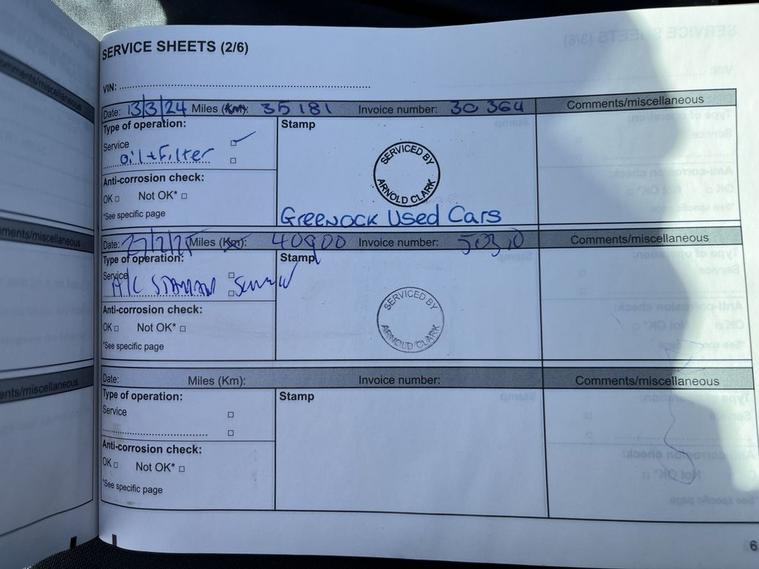 SERVICE SHEETS (2/6)
VIN:
Date: 13/3/24 Miles (Km): 35181 Invoice number: 30364 Comments/miscellaneous
Type of operation: Stamp
Service
Oil + Filter
SERVICED BY
ARNOLD CLARK
Anti-corrosion check:
OK Not OK*
*See specific page
Greenock Used Cars
Date: Miles (Km): Invoice number: Comments/miscellaneous
Type of operation: Stamp
Service
SERVICED BY
ARNOLD CLARK
Anti-corrosion check:
OK Not OK*
*See specific page
Date: Miles (Km): Invoice number: Comments/miscellaneous
Type of operation: Stamp
Service
Anti-corrosion check:
OK Not OK*
*See specific page
6